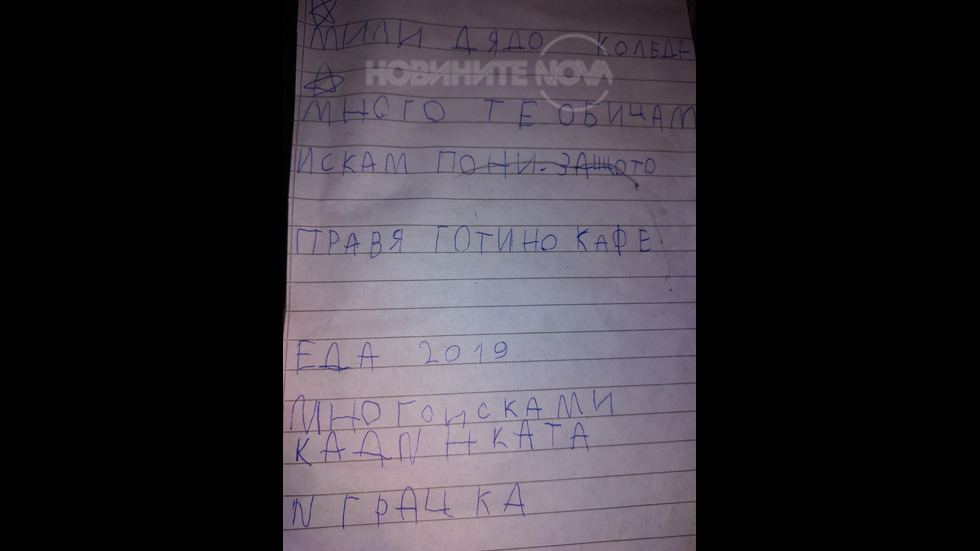 МИЛИ ДЯДО КОЛЕДА
НОВИНИТЕ NOVA
МНОГО ТЕ ОБИЧАМ
ИСКАМ ПОНИ. ЗАЩОТО
ПРАВЯ ГОТИНО КАФЕ
ЕДА 2019
МНОГОИСКАМИ
КАДNНКАТА
N ГРАЦКА